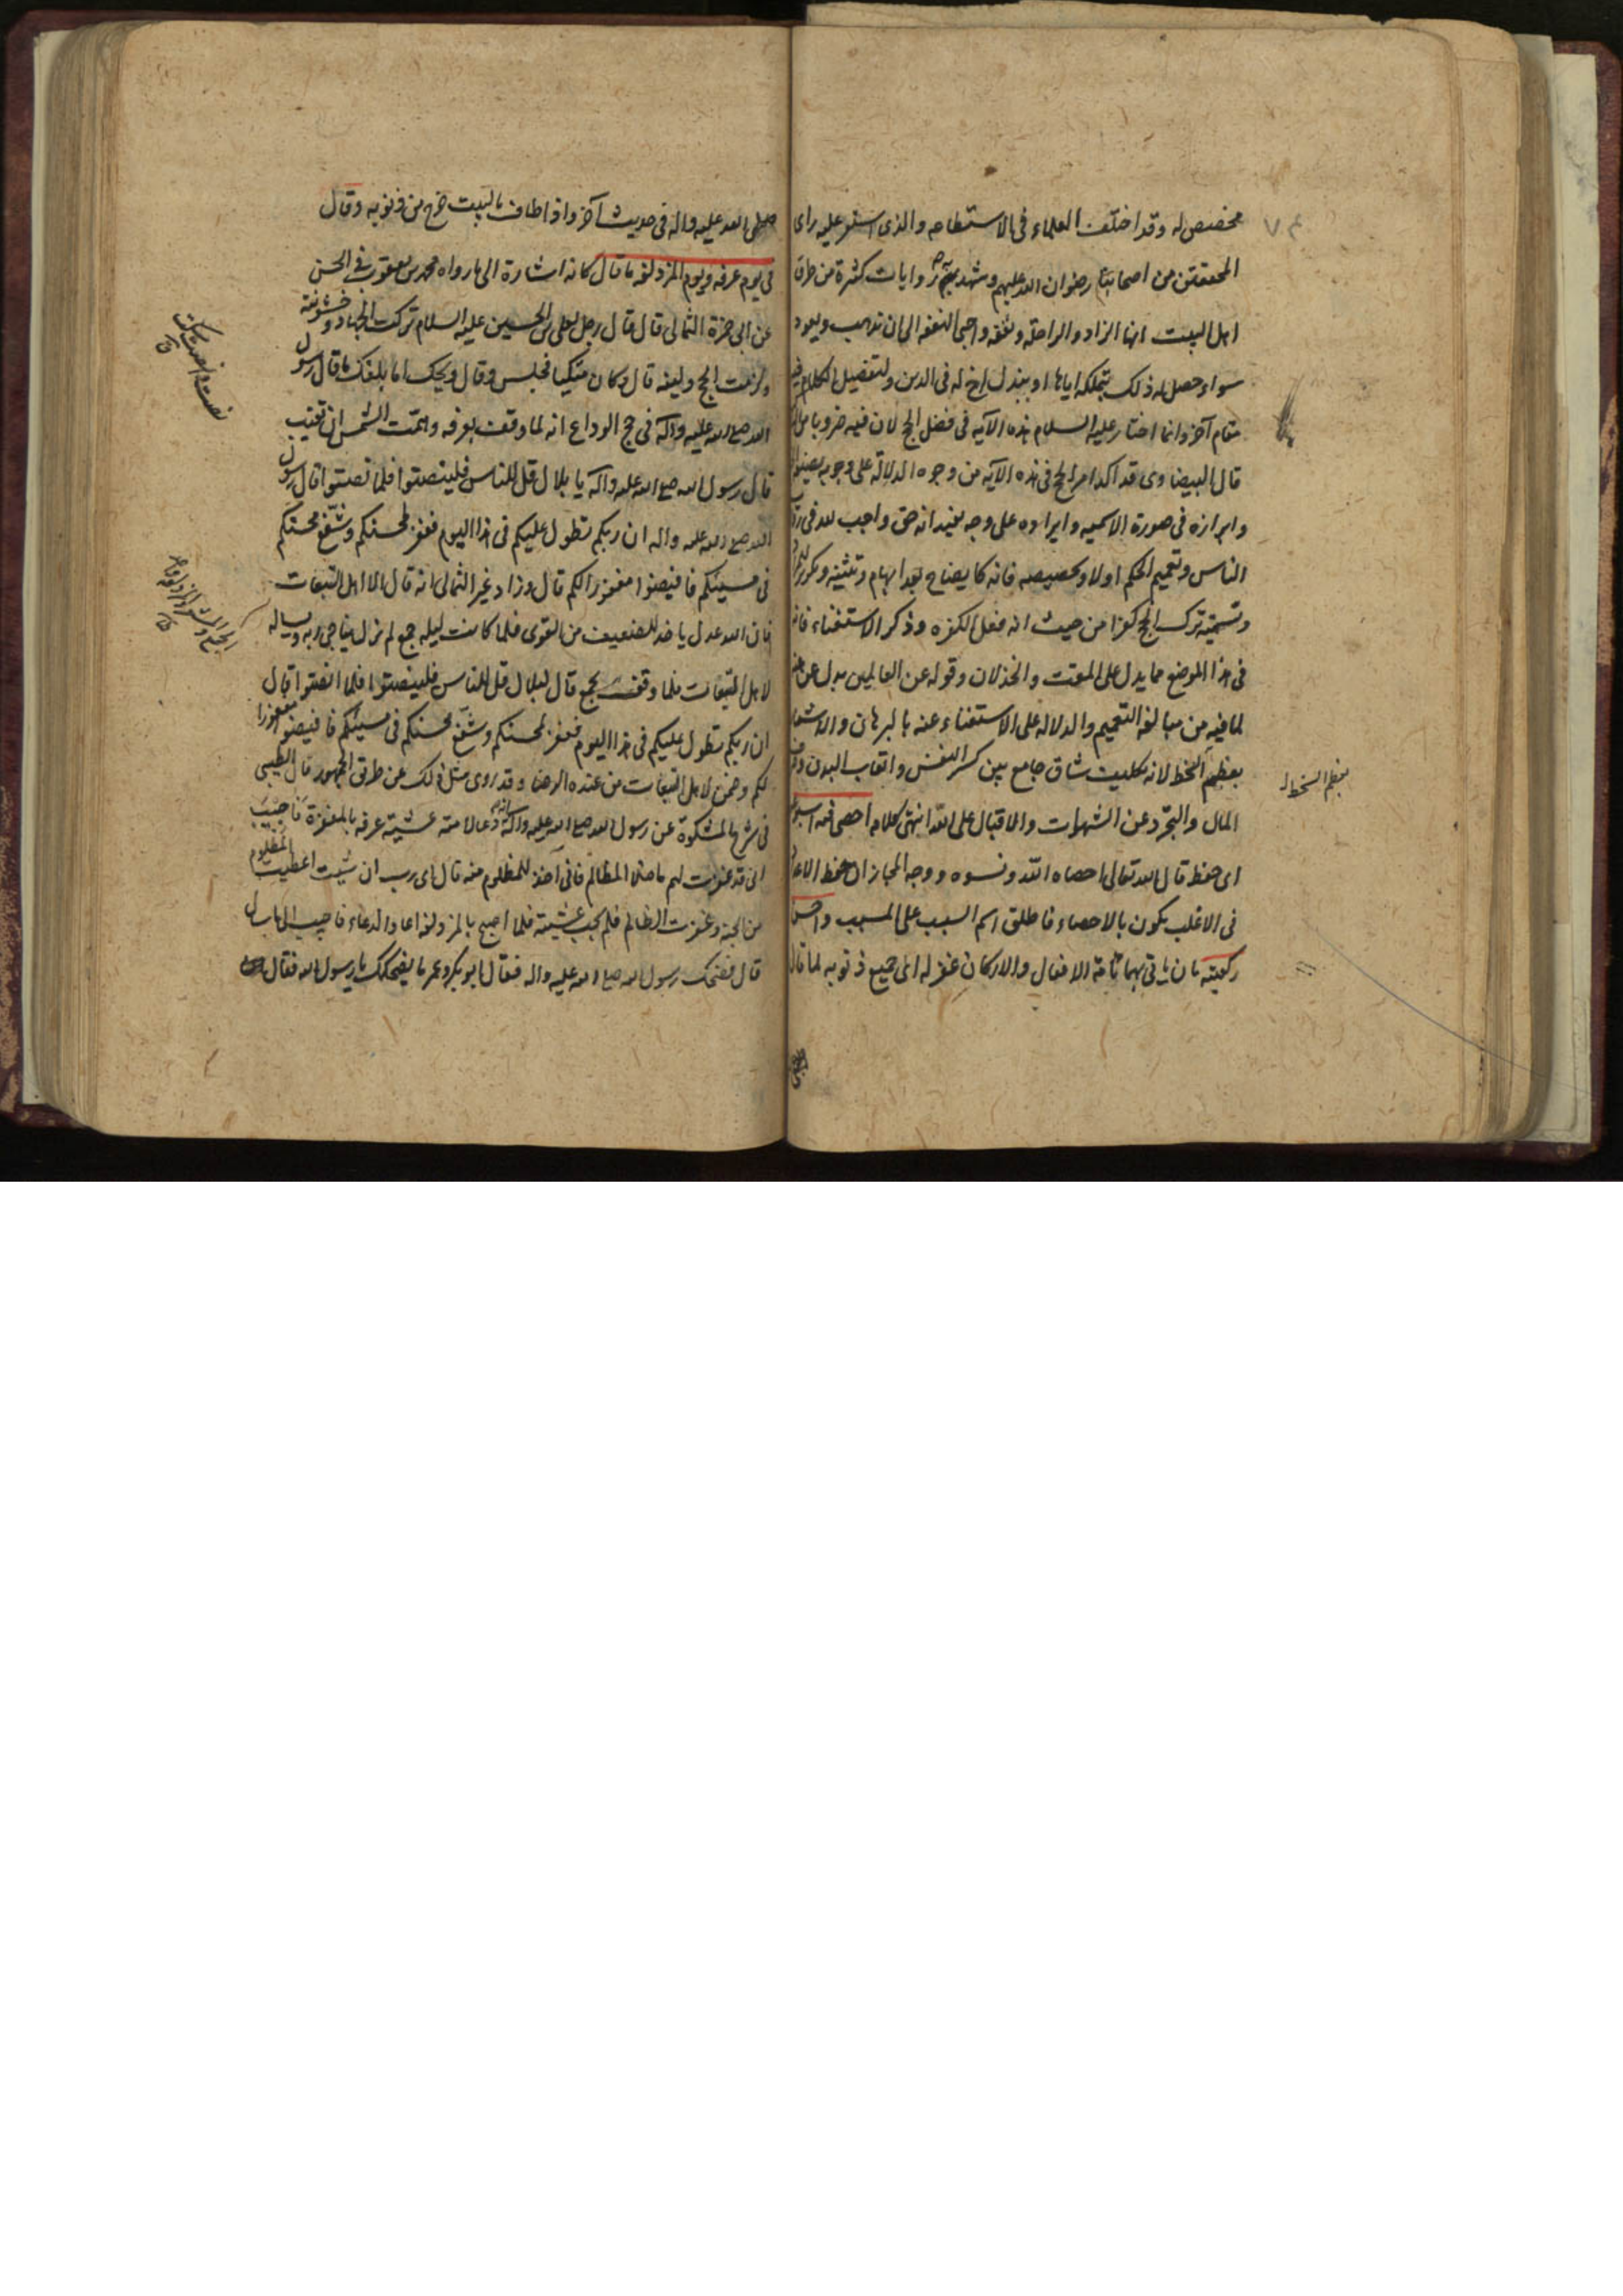 مخصص له وقد اختلف العلماء في الاستطاعه والذي استقر عليه راي
المحققين من اصحابنا رضوان الله عليهم وشهد به روايات كثيرة من طرق
اهل البيت انها الزاد والراحلة ونفقه واجبى النفقه الى ان يذهب ويعود
سواء حصل له ذلك بتملكه اياها او ببذل اخ له في الدين ولتفصيل الكلام فيه
مقام آخر وانما اختار عليه السلام هذه الآيه في فضل الحج لان فيه ضروبا من
قال البيضاوي قد اكد امر الحج في هذه الآيه من وجوه الدلالة على وجوبه بصيغة
وابرازه في صورة الاسميه وايراده على وجه يفيد انه حق واجب لله في رقاب
الناس وتعميم الحكم اولا وتخصيصه فانه كايضاح بعد ابهام وتثنيه وتكرير
وتسمية ترك الحج كفرا من حيث انه فعل الكفره وذكر الاستغناء فانه
في هذا الموضع مما يدل على المقت والخذلان وقوله عن العالمين يدل عن
لما فيه من مبالغه التعميم والدلاله على الاستغناء عنه بالبرهان والاشعار
بعظم السخط لانه تكليف شاق جامع بين كسر النفس واتعاب البدن
المال والتجرد عن الشهوات والاقبال على الله انتهى كلامه احصى
اى حفظ قال الله تعالى احصاه الله ونسوه ووجه المجاز ان حفظ الاعداد
في الاغلب يكون بالاحصاء فاطلق اسم السبب على المسبب واحسن
ركعتيه بان ياتي بهما تامة الافعال والاركان غفر له اي جميع ذنوبه لما قال
بعظم السخط
صلى الله عليه واله في حديث آخر واذا طاف بالبيت خرج من ذنوبه وقال
في يوم عرفه ويوم المزدلفه ما قال كانه اشارة الى ما رواه محمد بن يعقوب في الحسن
عن ابي حمزة الثمالي قال قال رجل لعلي بن الحسين عليه السلام تركت الجهاد وخشونته
ولزمت الحج ولينه قال وكان متكيا فجلس وقال ويحك اما بلغك ما قال رسول
الله صلى الله عليه واله في حج الوداع انه لما وقف بعرفه وهمت الشمس ان تغيب
قال رسول الله صلى الله عليه واله يا بلال قل للناس فلينصتوا فلما نصتوا قال رسول
الله صلى الله عليه واله ان ربكم تطول عليكم في هذا اليوم فغفر لمحسنكم وشفع محسنكم
في مسيئكم فافيضوا مغفورا لكم قال وزاد غير الثمالي انه قال الا اهل التبعات
فان الله عدل ياخذ للضعيف من القوى فلما كانت ليله جمع لم يزل يناجي ربه ويساله
لاهل التبعات فلما وقف بجمع قال لبلال قل للناس فلينصتوا فلما انصتوا قال
ان ربكم تطول عليكم في هذا اليوم فغفر لمحسنكم وشفع محسنكم في مسيئكم فافيضوا مغفورا
لكم وضمن لاهل التبعات من عنده الرضا وقد روى مثل ذلك عن طرق الجمهور قال الطيبي
في شرح المشكوة عن رسول الله صلى الله عليه واله انه دعا لامته عشية عرفه بالمغفرة فاجيب
انى قد غفرت لهم ما خلا المظالم فانى آخذ للمظلوم منه قال اى رب ان شيت اعطيت المظلوم
من الجنة وغفرت الظالم فلم يجب عشيته فلما اصبح بالمزدلفه اعاد الدعاء فاجيب الى ما سال
قال فضحك رسول الله صلى الله عليه واله فقال ابو بكر وعمر ما يضحكك يا رسول الله فقال